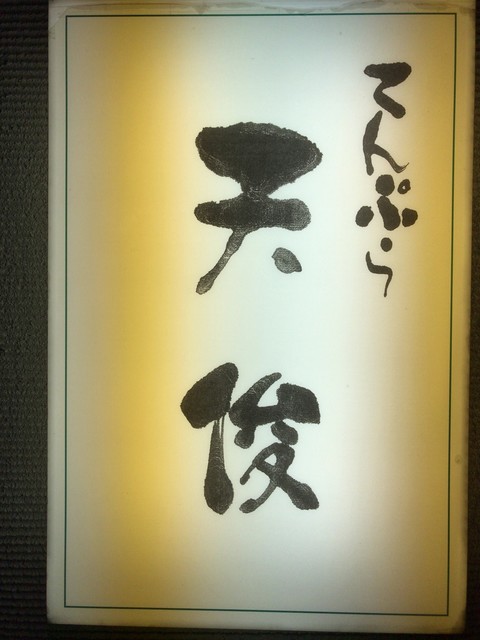 てんぷら
天俊